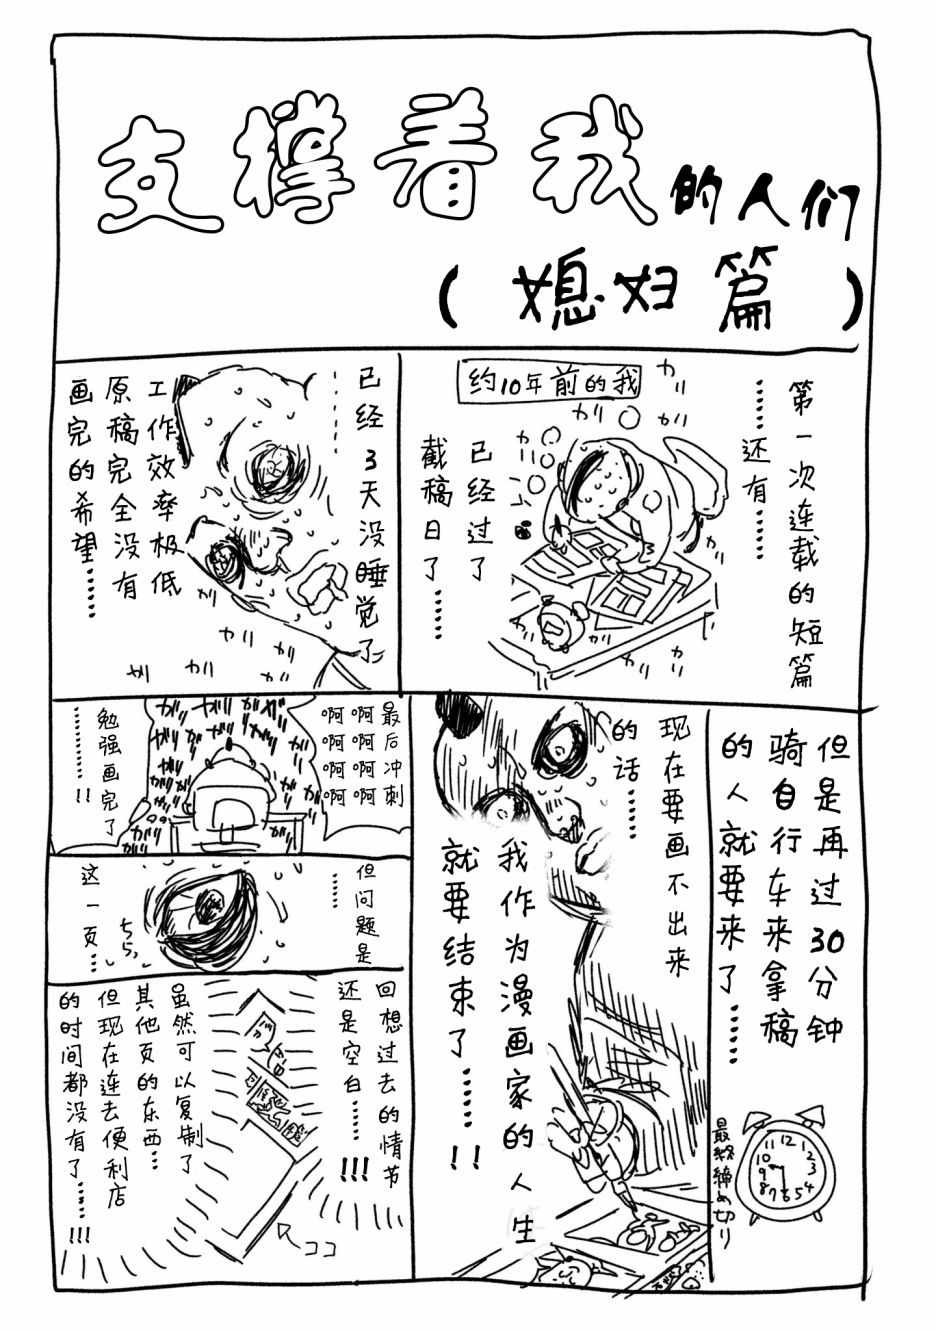 支撑着我的人们
(媳妇篇)
约10年前的我
第一次连载的短篇
……还有……
已经过了
截稿日了……
ガリ
ガリ
ガリ
ガリ
ガリ
ガリ
ガリ
ガリ
已经3天没睡觉了
……
工作效率极低
原稿完全没有
画完的希望……
ガリ
ガリ
ガリ
ガリ
ガリ
但是再过30分钟
骑自行车来拿稿
的人就要来了……
最終締め切り
12
1
2
3
4
5
6
7
8
9
10
11
现在要画不出来
的话……
我作为漫画家的人生
就要结束了……!!
最后冲刺
啊啊啊啊
啊啊啊啊
ガリ
ガリ
ガリ
ガリ
ガリ
ガリ
ガリ
勉强画完了
…………!!
但问题是
……
这一页…
ちら,
回想过去的情节
还是空白……!!!
ココ
虽然可以复制了
其他页的东西…
但现在连去便利店
的时间都没有了……!!!